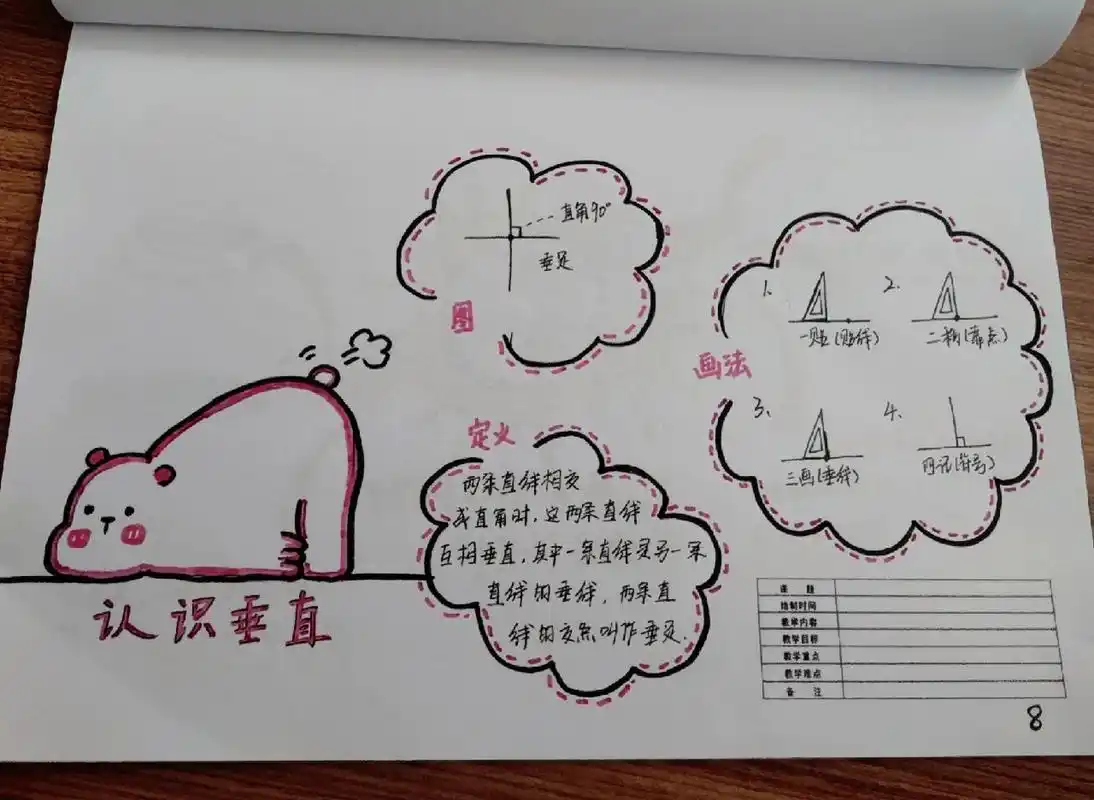 直角90°
垂足
图
画法
1.
2.
一贴(贴线)
二靠(靠点)
3.
4.
三画(垂线)
四记(符号)
定义
两条直线相交
成直角时,这两条直线
互相垂直,其中一条直线是另一条
直线的垂线,两条直
线的交点叫作垂足.
认识垂直
课 题
绘制时间
教学内容
教学目标
教学重点
教学难点
备 注
8